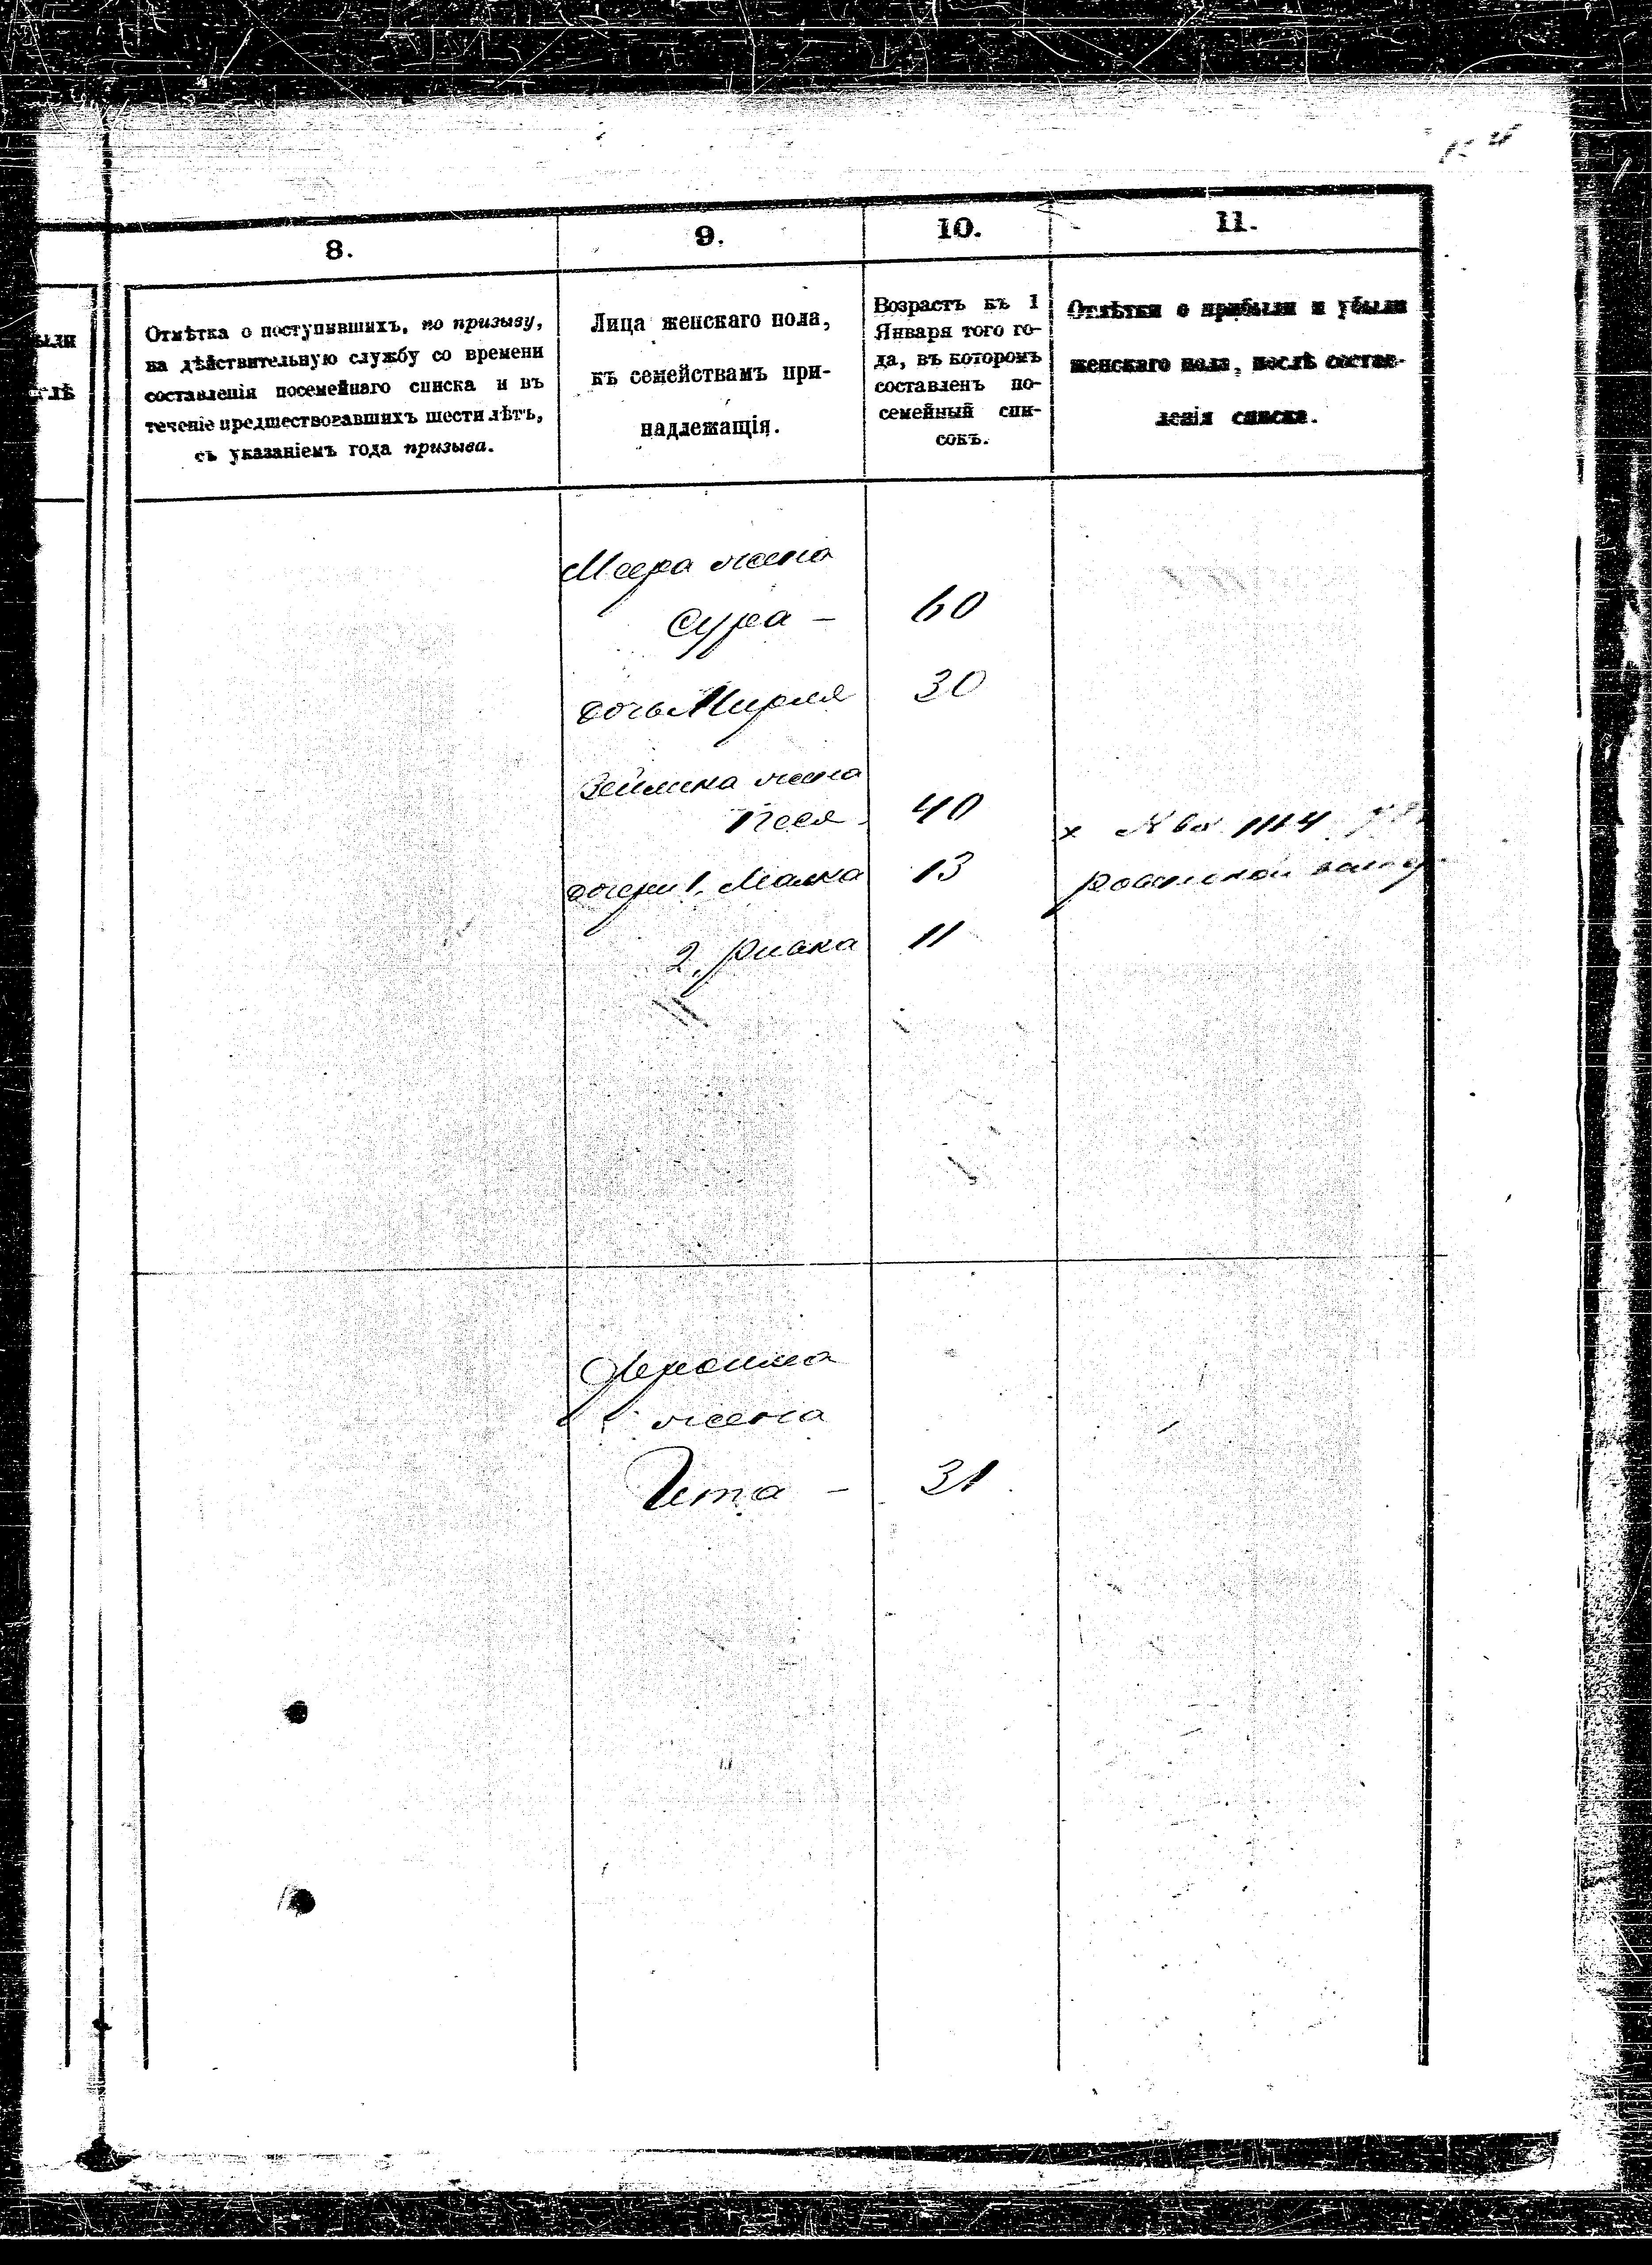 8.
9.
10.
11.
ыли
слѣ
Отмѣтка о поступившихъ, по призыву,
на дѣйствительную службу со времени
составленія посемейнаго списка и въ
теченіе предшествовавшихъ шести лѣтъ,
съ указаніемъ года призыва.
Лица женскаго пола,
къ семействамъ при-
надлежащія.
Возрастъ къ 1
Января того го-
да, въ которомъ
составленъ по-
семейный спи-
сокъ.
Отмѣтки о прибыли и убыли
женскаго пола, послѣ состав-
ленія списка.
Меера жена
Сура – 60
дочь Мирля 30
жена
Песя 40
дочери 1. Малка 13
2. Ривка 11
х
жена
Ита – 31